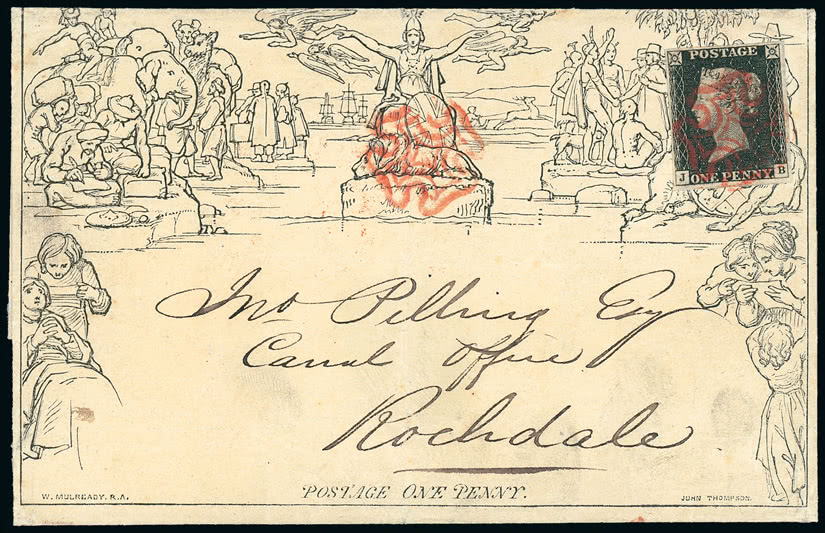 POSTAGE
J ONE PENNY B
Jno Pilling Esq
Canal Office
Rochdale
POSTAGE ONE PENNY.
W. MULREADY. R.A.
JOHN THOMPSON.